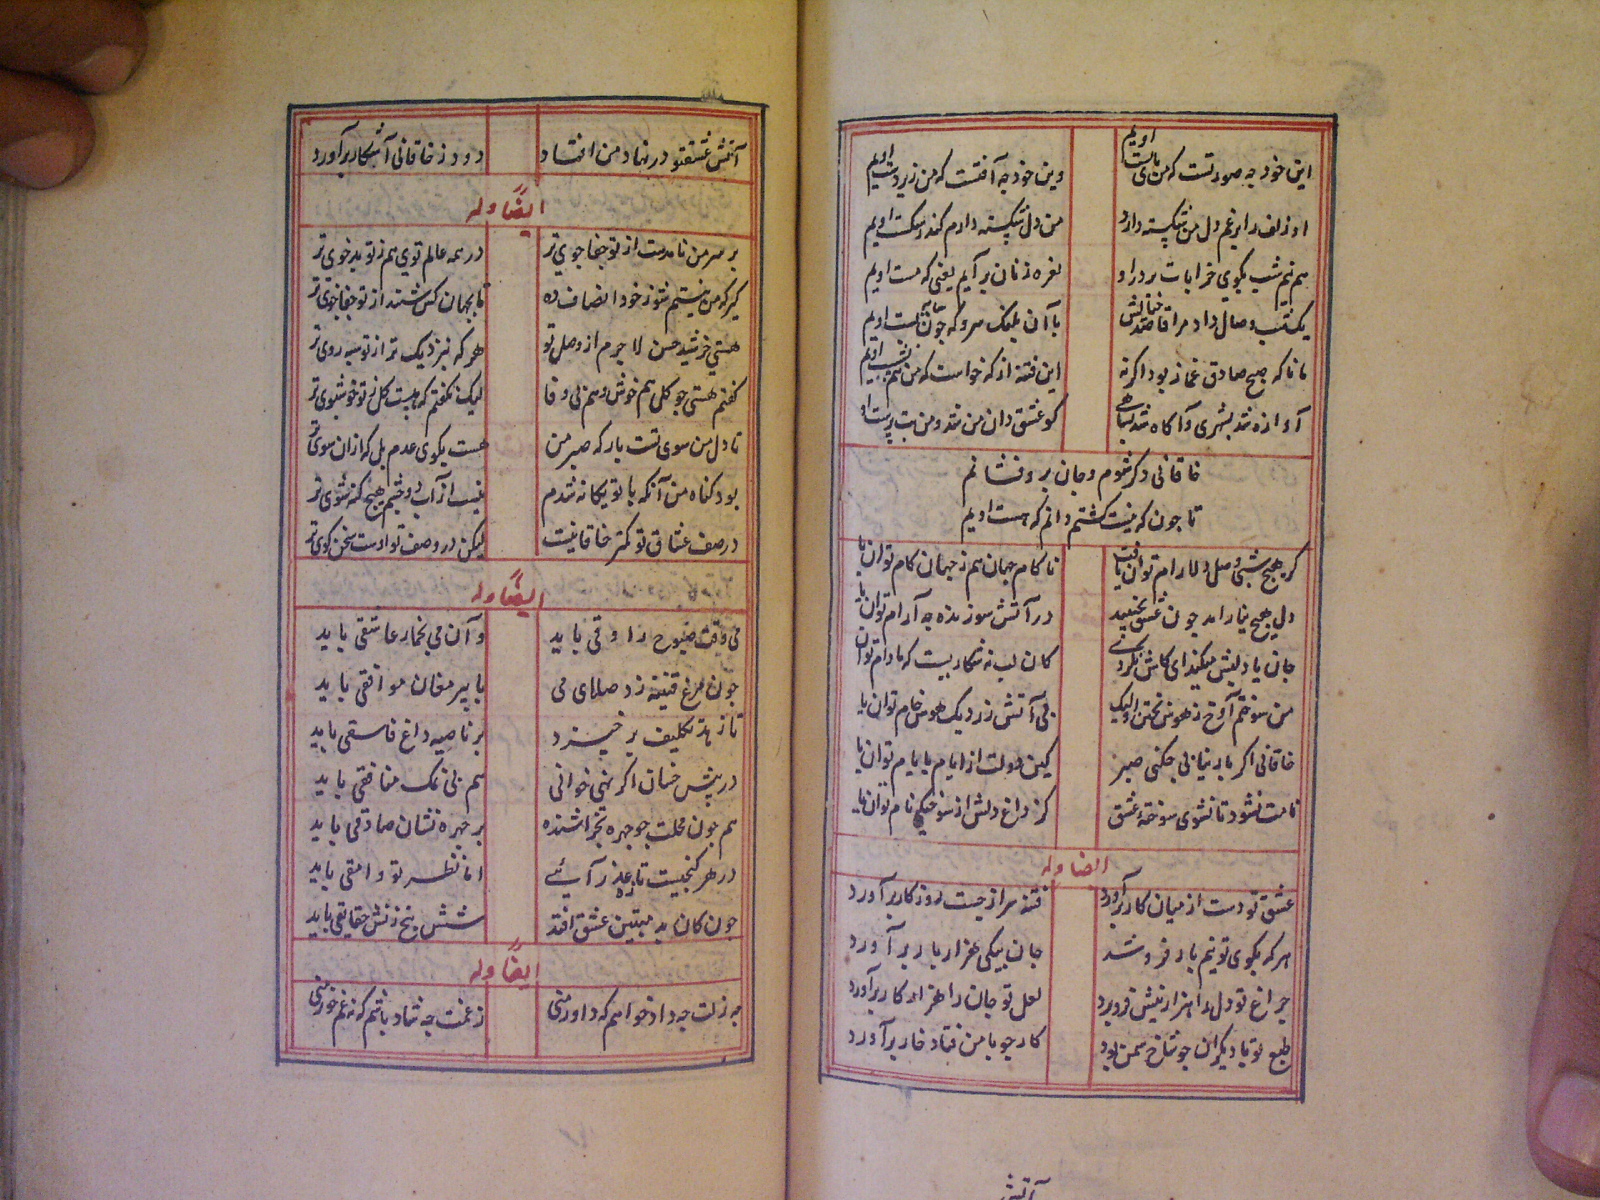 این خود چه صورتست که من پای بست اویم وین خود چه آفتست که من زیر دست اویم
او زلف را برغم دل من شکسته دارد من دل شکسته دارم کندر شکست اویم
هم نیم شب بکوی خرابات بر در او نعره زنان برآیم یعنی که مست اویم
یک شب وصال داد مرا قاصد خیالش با آن بلند سرو که چون سایه پست اویم
مانا که صبح صادق غماز بود اگر نه این فتنه از که خواست که من هم نشست اویم
آوازه شد بشهری و آگاه شد سپاهی کو عشق دان من شد و من بت پرست او
خاقانی دگر شوم و جان برو فشانم
تا چون که نیست گشتم دانم که هست اویم
گر هیچ شبی وصل دلارام توان یافت ناکام جهان هم ز جهان کام توان یا
دل هیچ نیارامد چون عشق بجنبید در آتش سوزنده چه آرام توان یا
جان یاد لبش میکند ای کاش نکردی کان لب نه شکاریست که مادام توان
من سوختم آوخ ز هوس پختن و لیک بی آتش زر دیک هوس خام توان یا
خاقانی اگر یار نیابی چکنی صبر کین دولت از ایام بایام توان یا
نامت نشود تا نشوی سوخته عشق کز داغ دلش از سوختگی نام توان یا
ایضا وله
عشق تو دست از میان کار برآورد فتنه سر از جیب روزگار برآورد
هر که بکوی تو نیم بار فرو شد جان بیکی هزار بار برآورد
چراغ تو دل را هزار نیش فرو برد لعل تو جان را هزار کار برآورد
طبع تو با دیگران چو شاخ سمن بود کار چو با من فتاد خار برآورد
آتش
آتش عشق تو در نهاد من افتاد دود ز خاقانی آشکار برآورد
ایضًا وله
بر سر من نامدست از تو جفا جوی تر در همه عالم توی هم ز تو بدخوی تر
گیر که من نیستم شو ز خود انصاف ده تا بجهان کس شنند از تو جفا خوی تر
هستی خرشید حسن لا جرم از وصل تو هر که بنزدیک تر از تو سیه روی تر
گفتم هستی چو گل هم خوش و هم بی وفا لیک نگفتم که هست گل ز تو خوشبوی تر
تا دل من سوی تست بارگه صبر من هست بکوی عدم بل که ازان سوی تر
بود گناه من آنکه با تو یگانه شدم نیست از آب دو چشم هیچ گنه شوی تر
در صف عشاق تو کمتر خاقانیست لیکن در وصف تو اوست سخن گوی تر
ایضًا وله
می وقت صبوح راوقی باید و آن می بخمار عاشقی باید
چون مرغ قنینه زد صلای می با پیر مغان موافقی باید
تا زهد تکلیف برخیزد بر ناصیه داغ فاسقی باید
در پیش خسان اگر نهی خوانی هم بی نمک منافقی باید
هم چون محلت چو چهره بخراشنده بر چهره نشان صادقی باید
در هر کنجیست تازه عذرائے اما نظر تو وامقی باید
چون کان به مبتین عشق افتد شش پنج زنش حقایقی باید
ایضًا وله
چه زلت چه داد خواهم که داور منی ز غمت چه شاد باشم که نه غم خور منی